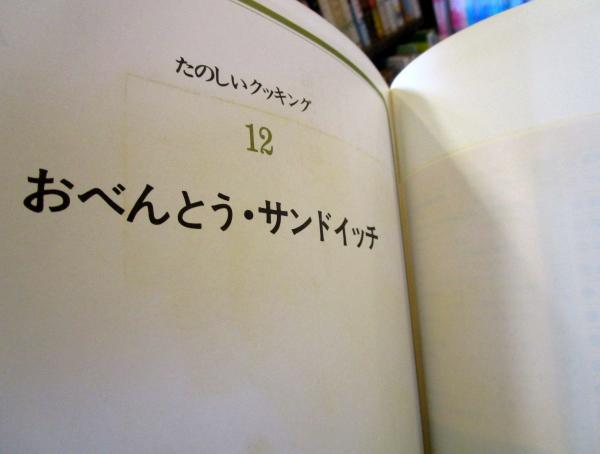 たのしいクッキング
12
おべんとう・サンドイッチ